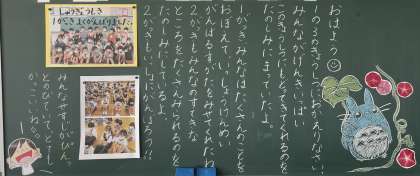 おはよう
1の3のきょうしつにおかえりなさい!
みんながげんきいっぱい
このきょうしつにもどってきてくれるのを、
たのしみにまっていたよ。
1がっきみんなはたくさんのことを
おぼえて、いっしょうけんめい
がんばるすがたをみせてくれたね
2がっきもみんなのすてきな
ところをたくさんみられるのを
たのしみにしているよ。
2がっきもいっしょにがんばろう!!
しゅうぎょうしき
1がっきよくがんばりました!
みんなやすみじかん。
とのびていて、とっても
かっこいいね。